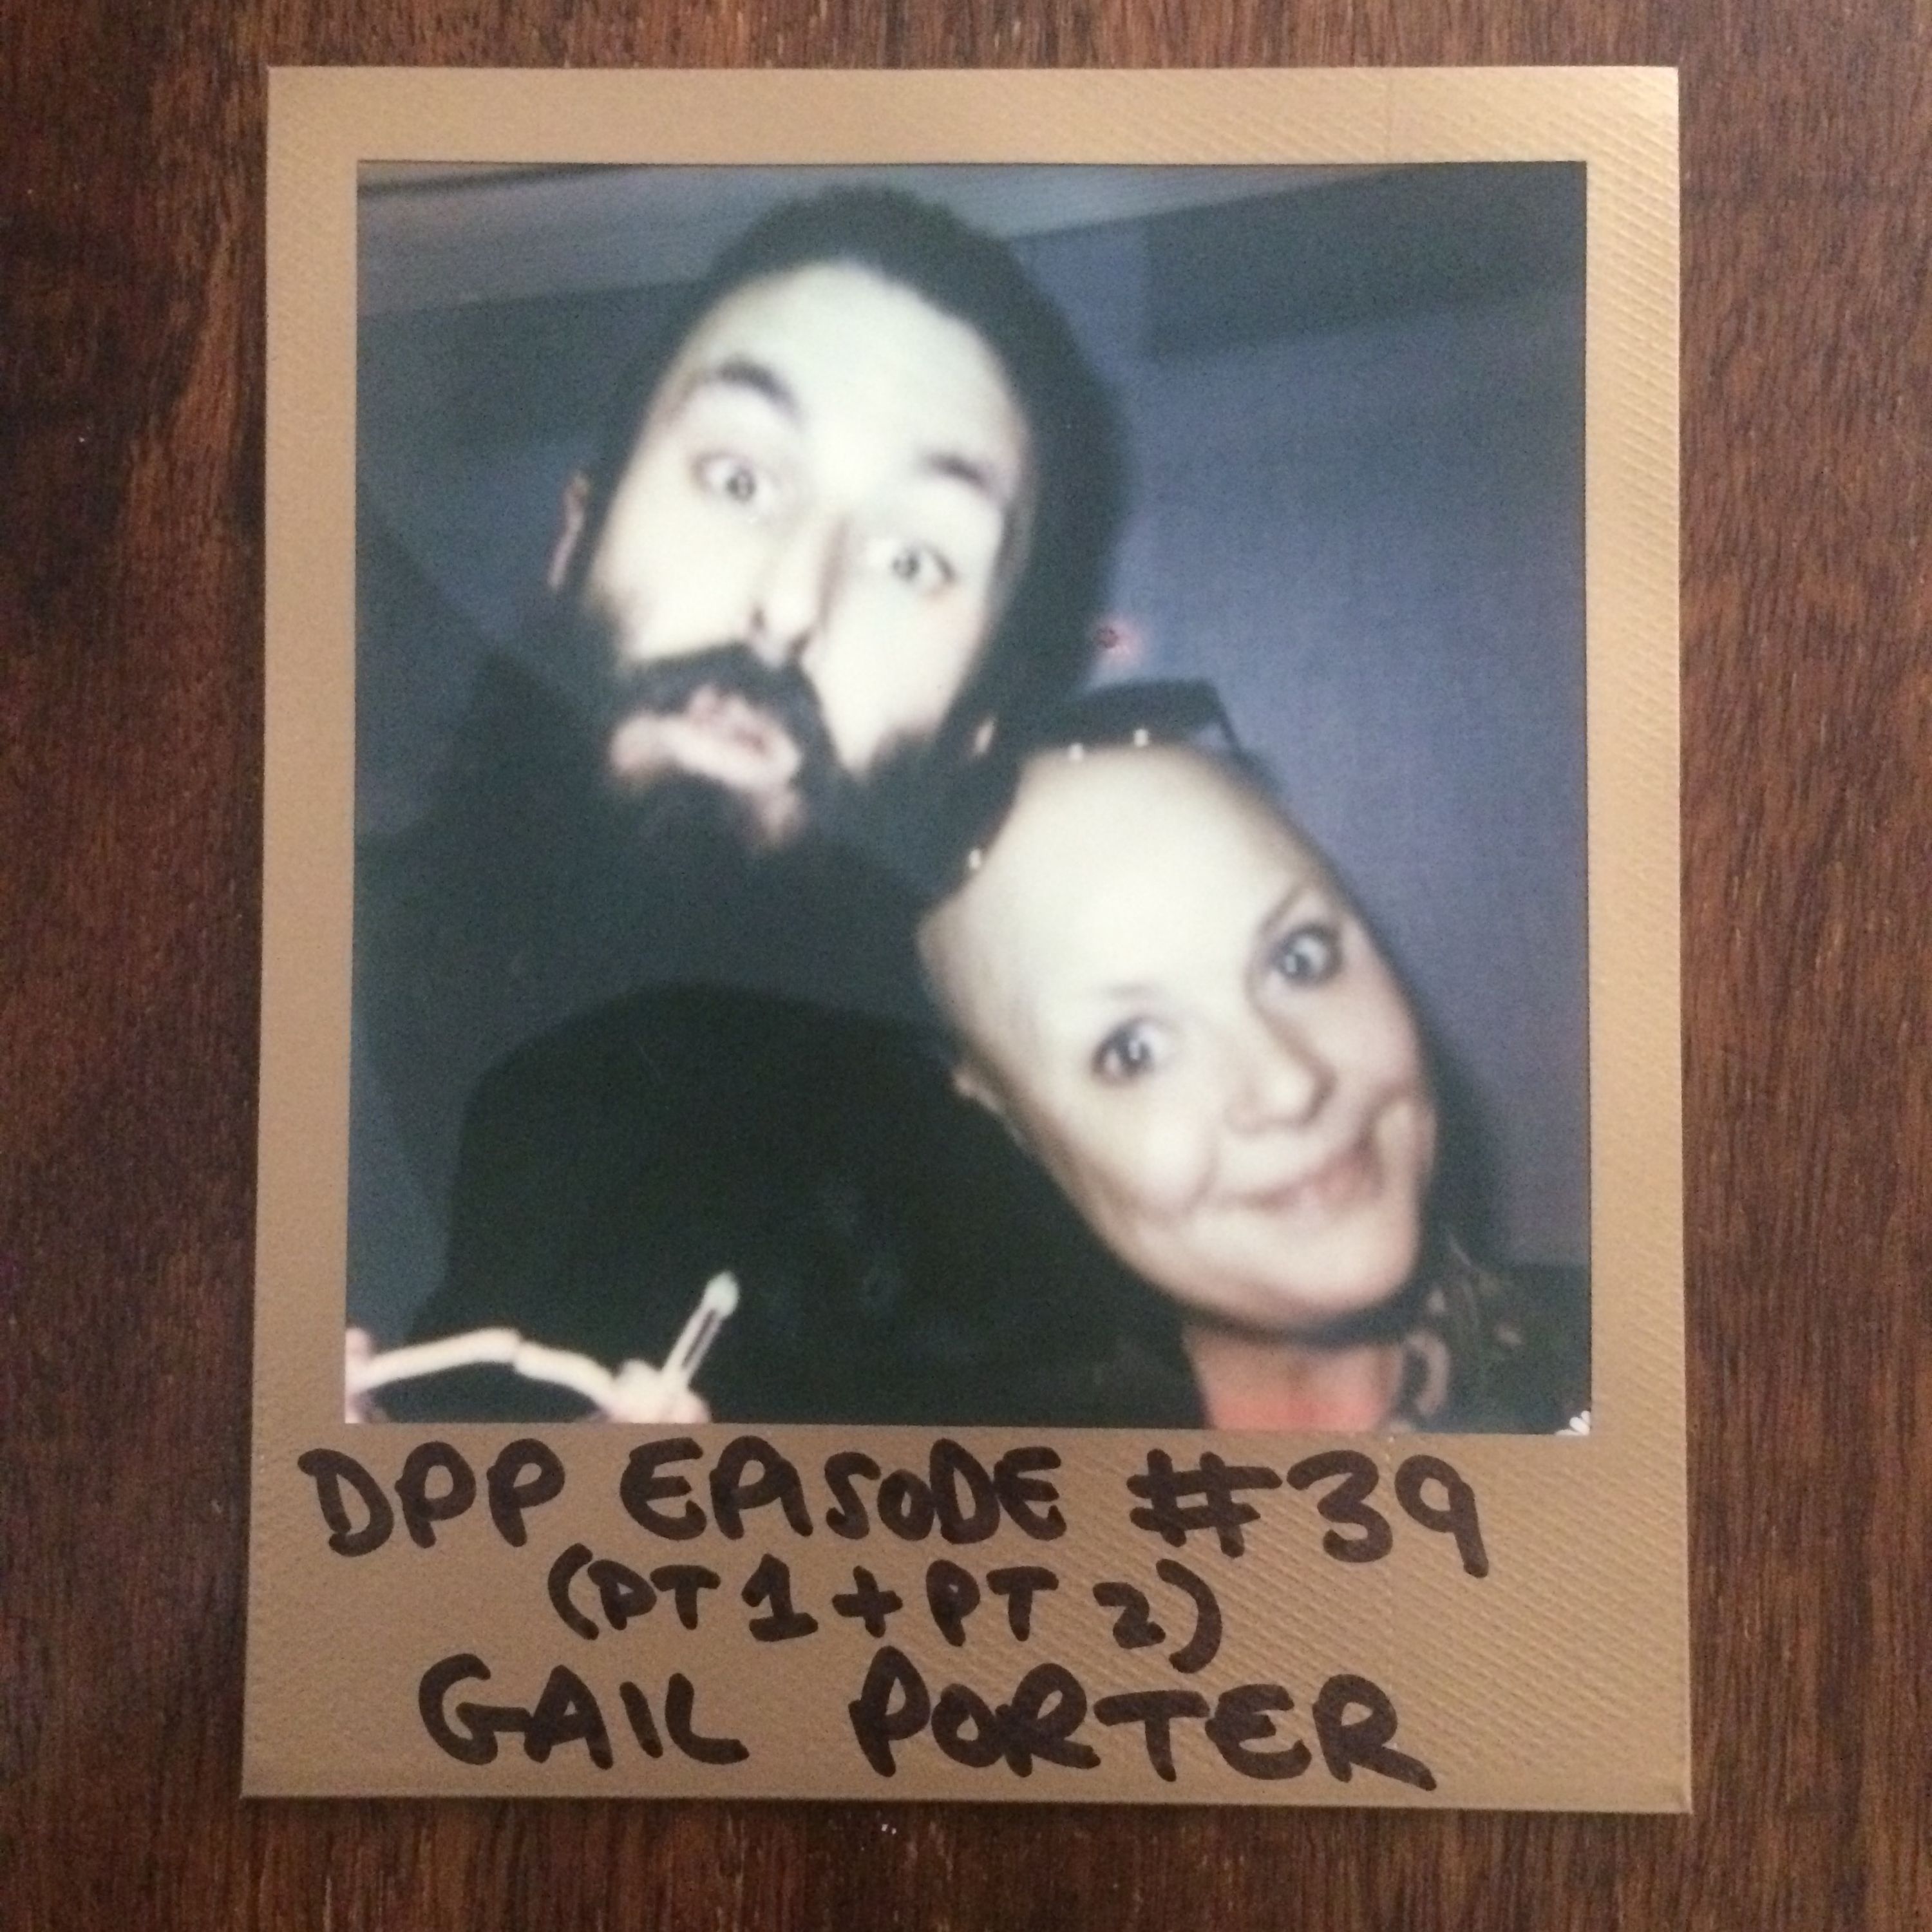 DPP EPISODE #39
(PT 1 + PT 2)
GAIL PORTER